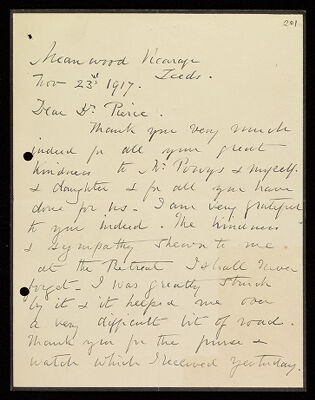 201
Meanwood Vicarage
Leeds.
Nov 23rd 1917.
Dear Dr. Pierce.
Thank you very much
indeed for all your great
kindness to Mr. Powys & myself
& daughter & for all you have
done for us - I am very grateful
to you indeed. The kindness
& sympathy shewn to me
at the Retreat I shall never
forget - I was greatly struck
by it & it helped me over
a very difficult bit of road.
Thank you for the purse &
watch which I received yesterday.